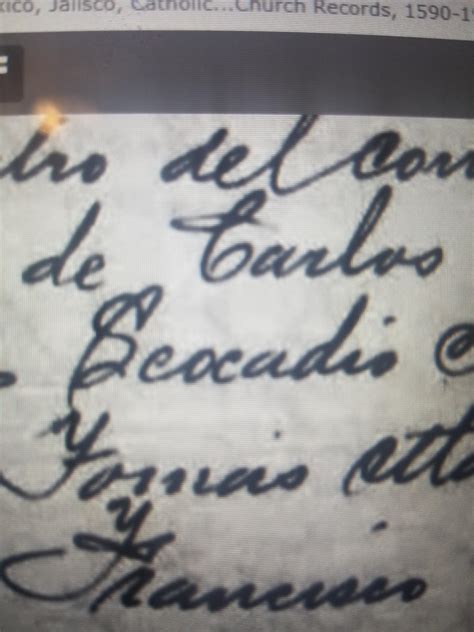 xico, Jalisco, Catholic...Church Records, 1590-1
F
tro del com
de Carlos
Leocadio
y
Tomas
y
Francisco